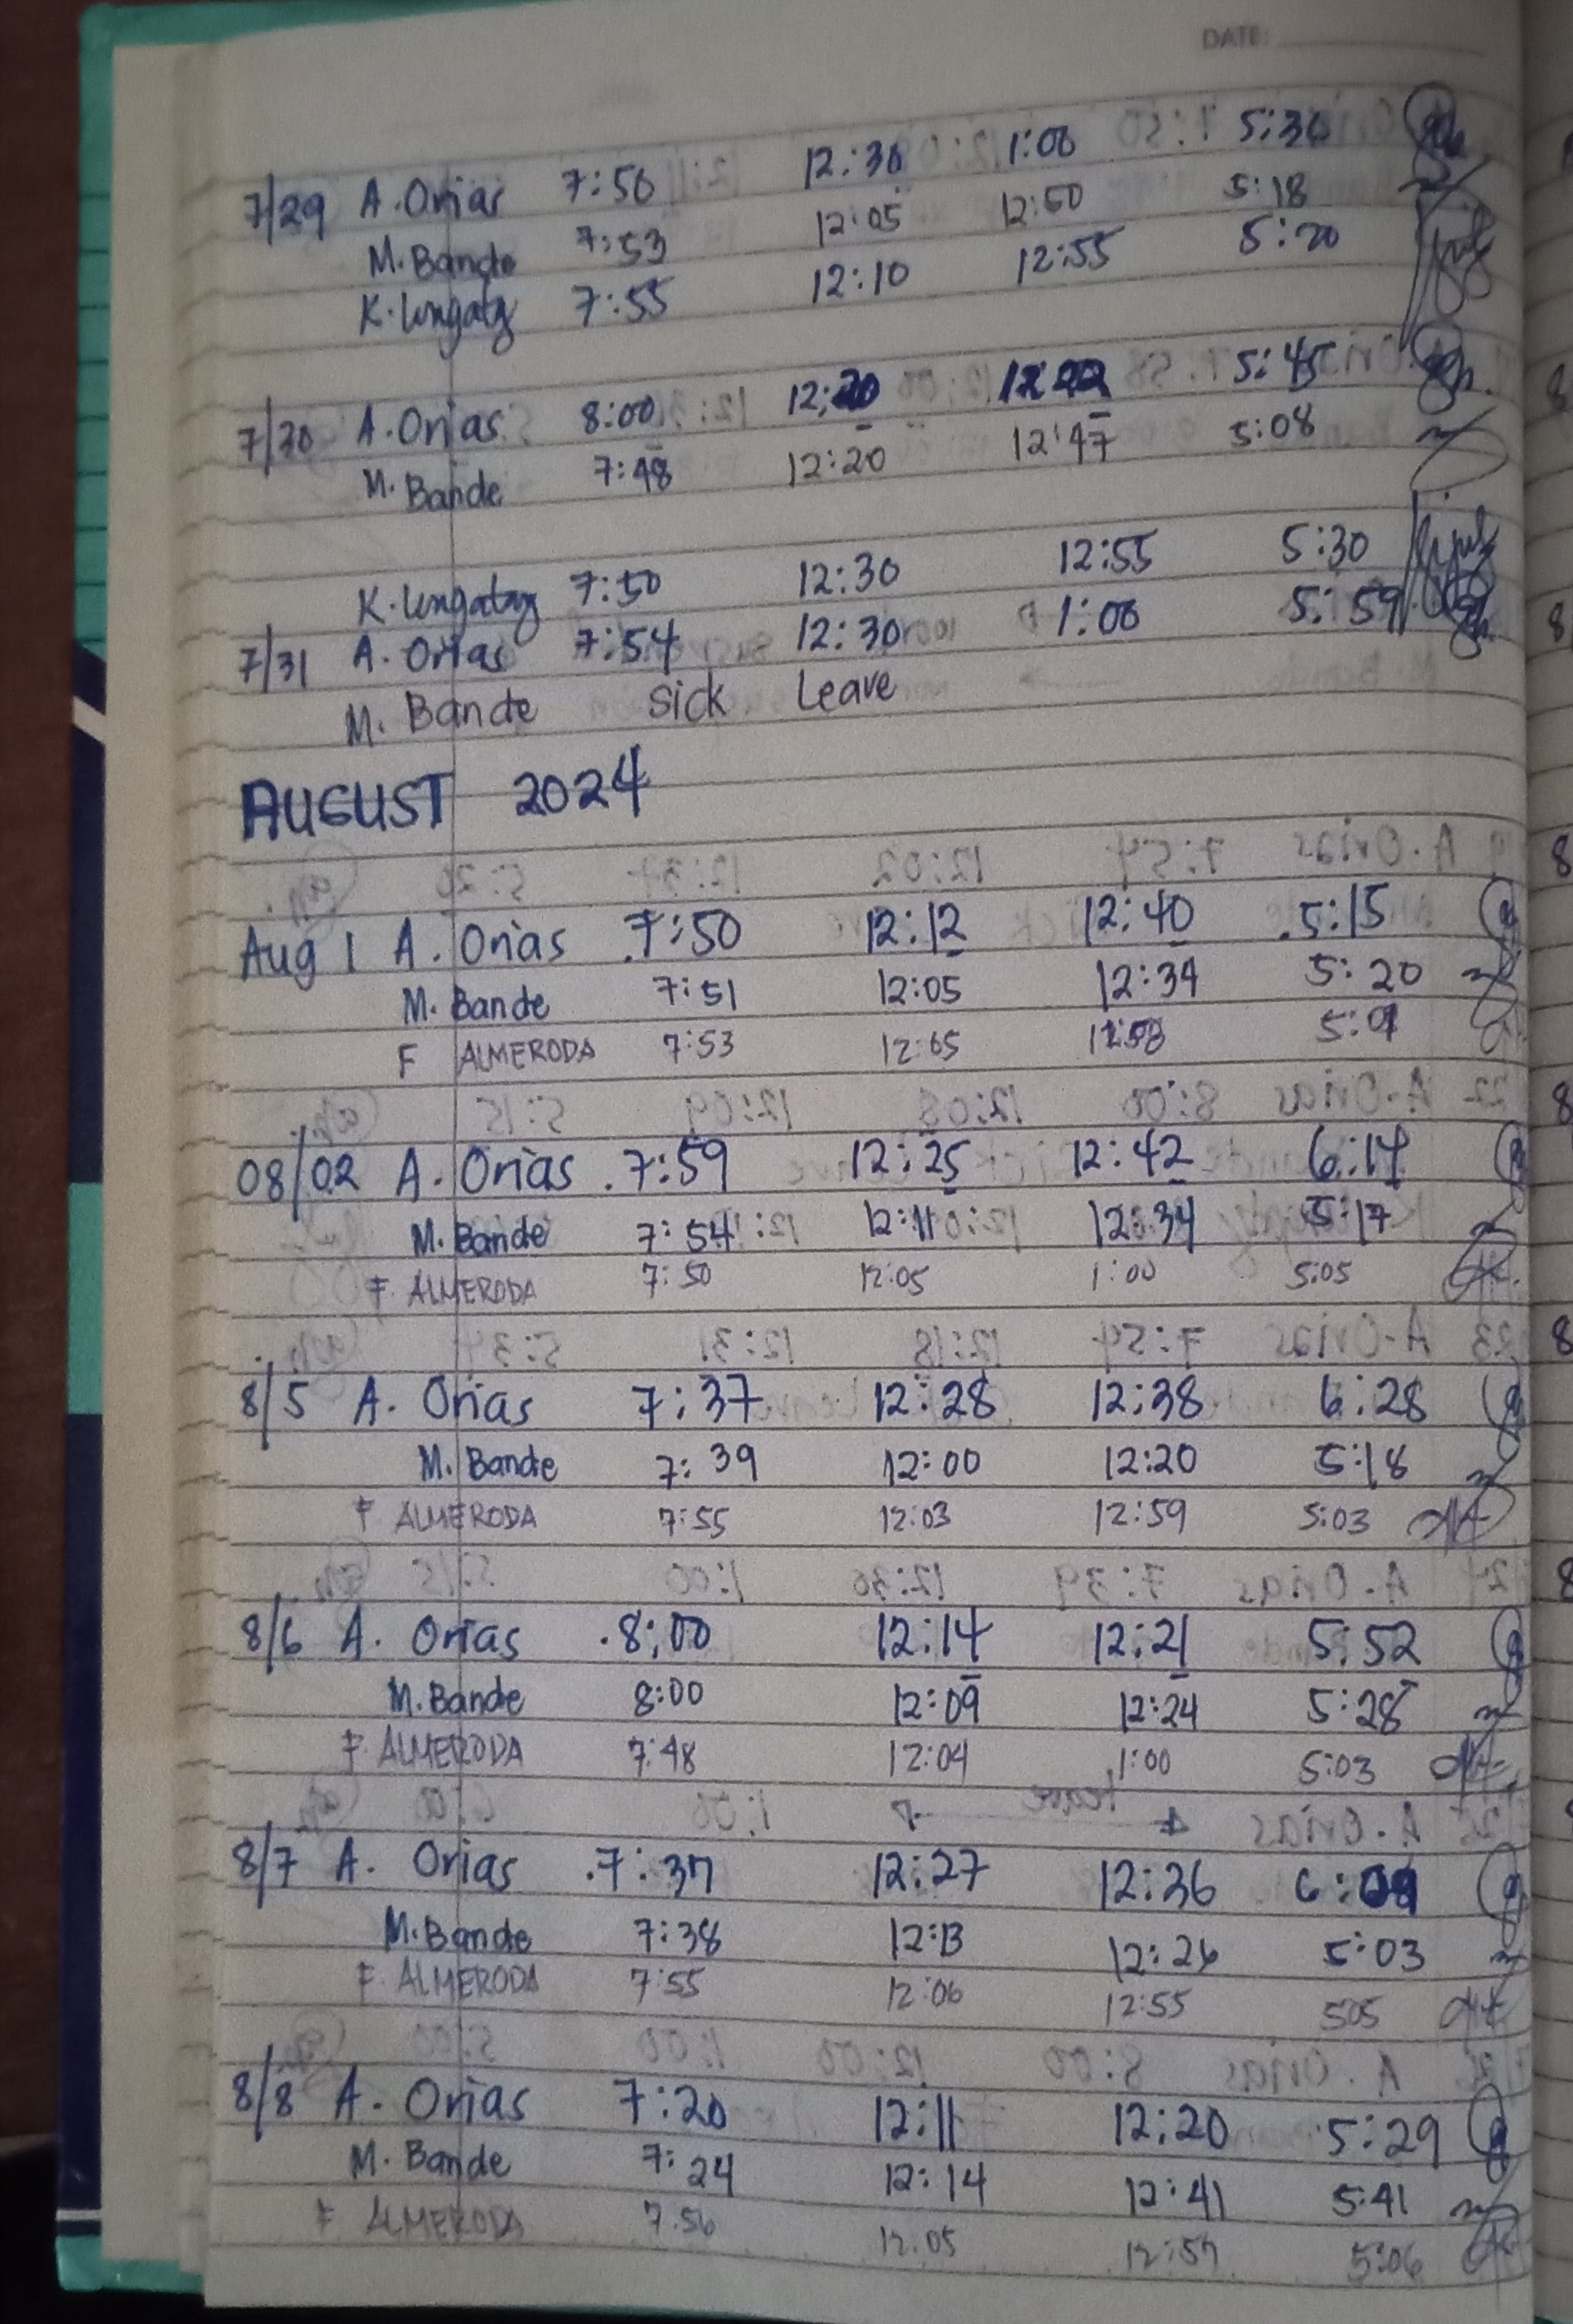 DATE:
7/29 A. Orias 7:50 12:30 1:00 5:30
M. Bande 7:53 12:05 12:50 5:18
K. 7:55 12:10 12:55 5:20
7/30 A. Orias 8:00 12:20 5:45
M. Bande 7:48 12:20 12:47 5:08
K. 7:50 12:30 12:55 5:30
7/31 A. Orias 7:54 12:30 1:00 5:59
M. Bande Sick Leave
AUGUST 2024
Aug 1 A. Orias 7:50 12:12 12:40 5:15
M. Bande 7:51 12:05 12:34 5:20
F ALMERODA 7:53 12:05
08/02 A. Orias 7:59 12:25 12:42 6:14
M. Bande 7:54 12:11 12:34 5:17
F. ALMERODA 7:50 12:05 1:00 5:05
8/5 A. Orias 7:37 12:28 12:38 6:28
M. Bande 7:39 12:00 12:20 5:18
F ALMERODA 7:55 12:03 12:59 5:03
8/6 A. Orias 8:00 12:14 12:21 5:52
M. Bande 8:00 12:09 12:24 5:28
F. ALMERODA 7:48 12:04 1:00 5:03
8/7 A. Orias 7:37 12:27 12:36
M. Bande 7:38 12:13 12:26 5:03
F. ALMERODA 7:55 12:06 12:55 505
8/8 A. Orias 7:20 12:11 12:20 5:29
M. Bande 7:24 12:14 12:41 5:41
F ALMERODA 7:56 12:05 12:57 5:06